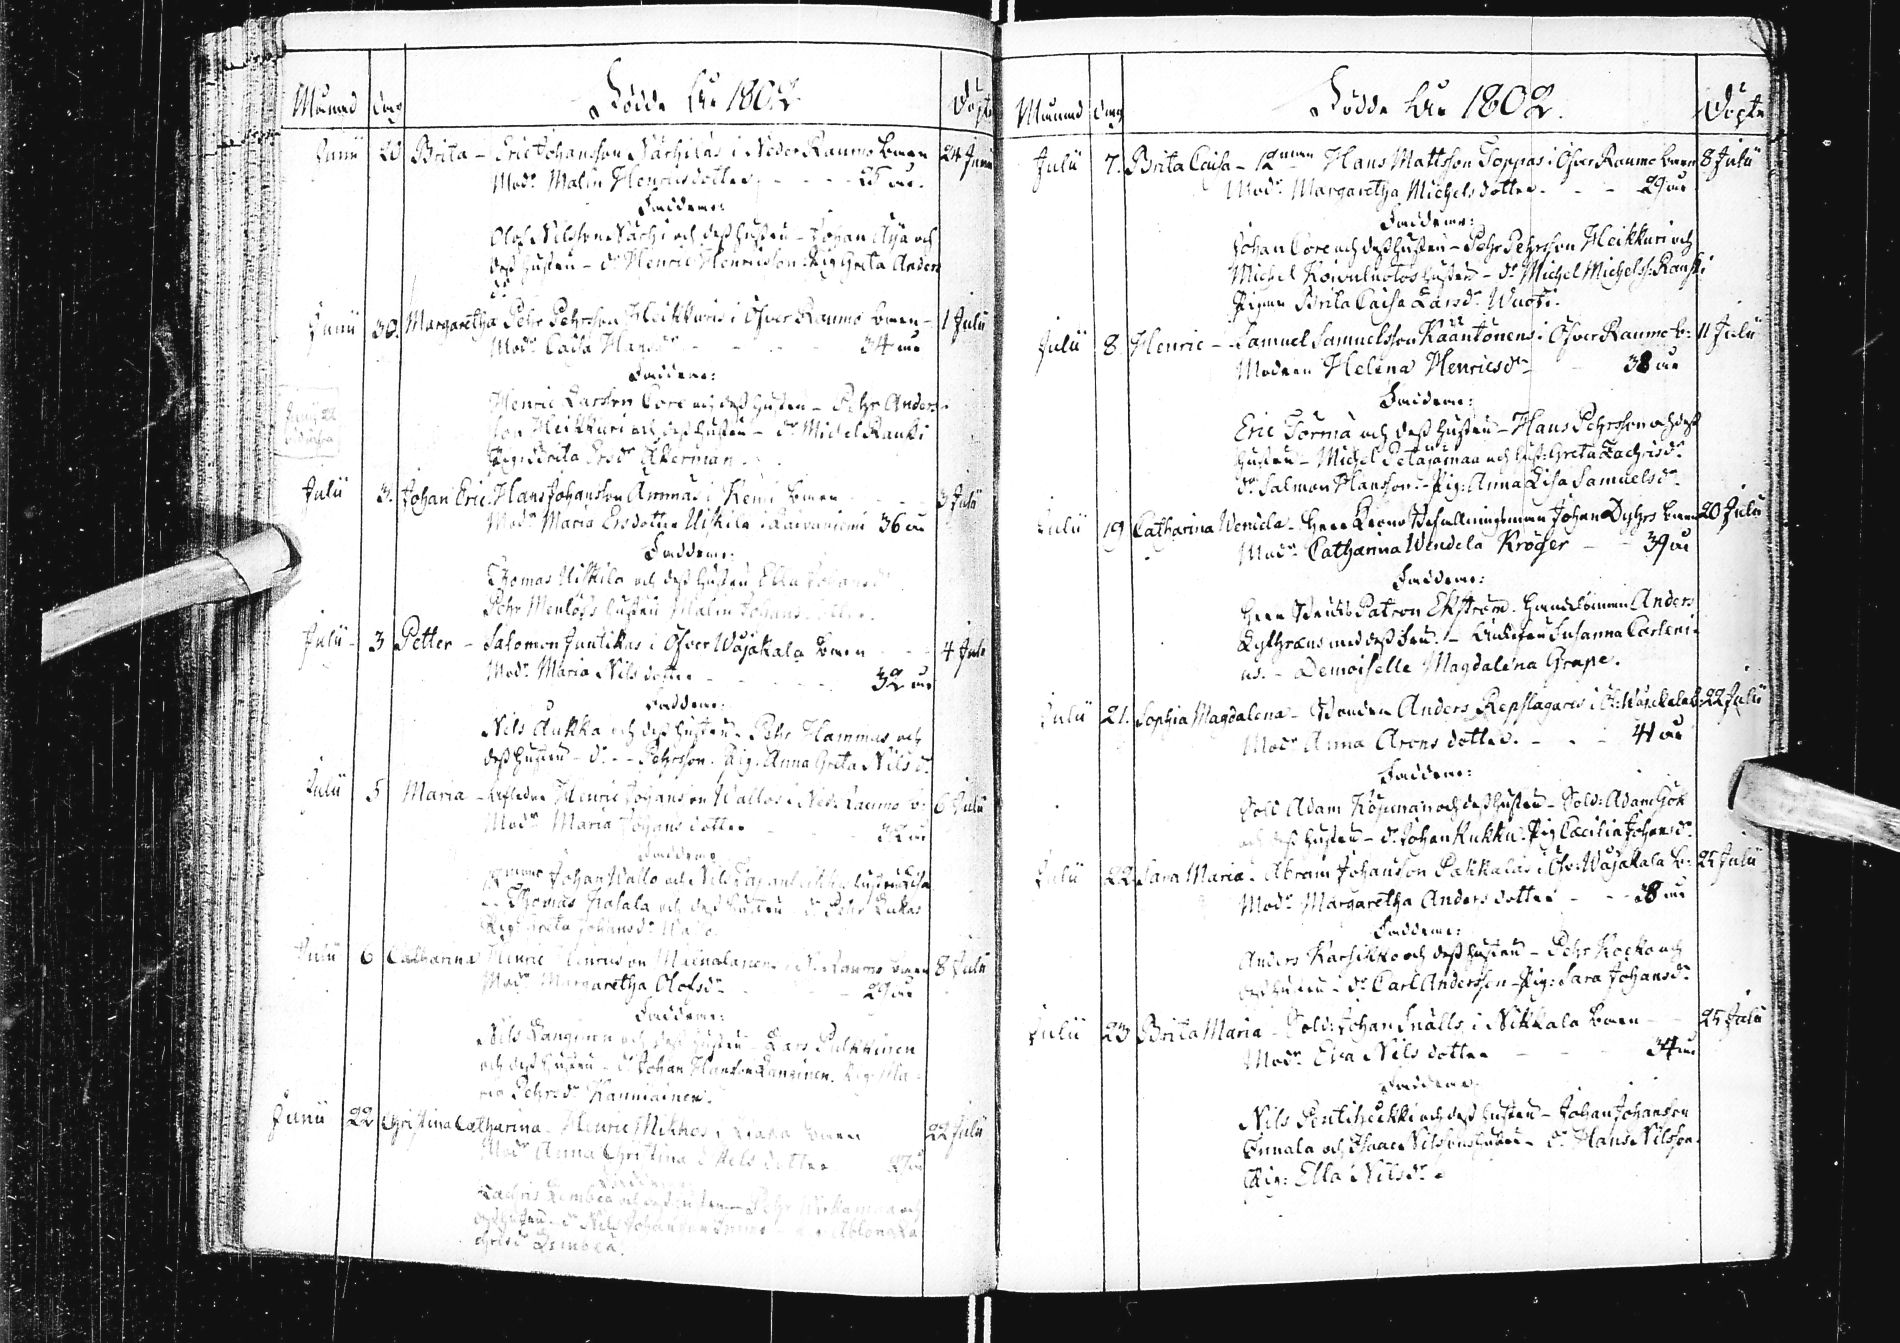 Födde År 1802.
Månad Dag Döpte
Junii 20 Brita - Eric Johansson Närhiläs i Neder Raumo barn 24 Junii
Mod: Malin Henricsdotter - - - 25 år.
Faddrar:
Olof Nilsson Närhi och dess hustru - Johan Äijä och
dess hustru - d: Henric Henricsson. Pig: Greta Anders
d:
Junii 30. Margaretha Pehr Pehrsson Heikkuris i Öfver Raumo barn - 1 Julii
Mod: Caisa Hansd: - - - 34 år
Faddrar:
Henric Larsson Core och dess hustru - Pehr Anders-
son Heikkuri och dess hustru - d: Michel Rauki
Pig: Brita Ersd: Åkerman.
Julii 3. Johan Eric. Hans Johansson Ammäs i Kemi barn 3 Julii
Mod: Maria Ersdotter Uiskila i Rovaniemi 36 år
Faddrar:
Thomas Uiskila och dess hustru Ella Johansd:
Pehr hustru Malin Johansdotter.
Julii - 3 Petter - Salomon Juntikas i Öfver Wojakala barn - - 4 Julii
Mod: Maria Nilsdotter - - - 32 år
Faddrar:
Nils Aukka och dess hustru - Pehr Hammas och
dess hustru - d: - - Pehrsson. Pig: Anna Greta Nilsd:
Julii 5 Maria - Henric Johansson Wallos i Ned: Raumo b: 6 Julii
Mod: Maria Johansdotter 32 år
Faddrar
Johan Wallo och Nils hustru
Thomas och dess hustru d: Pehr Lukas
Pig: Greta Johansd: Wallo.
Julii 6 Catharina Henric Henricsson i N: Raumo barn 8 Julii
Mod: Margaretha Olofsd: - - 29 år
Faddrar:
Nils Kanginen och dess hustru - Lars Pulkkinen
och dess hustru - d: Johan Hansson Kanginen. Pig: Ma-
ria Pehrsd: Kaumainen.
Junii 22 Christina Catharina - Henric Mikkos i barn 22 Julii
Mod: Anna Christina Nilsdotter 27 år
Faddrar:
Zachris Lembea och dess hustru - Pehr och
dess hustru - d: Nils Johansson Za-
chrisd: Lembea.
Födde År 1802.
Månad Dag Döpte
Julii 7. Brita Caisa - 12 man Hans Mattsson Toppas i Öfver Raumo barn 8 Julii
Mod: Margaretha Michelsdotter. - - 29 år
Faddrar:
Johan Core och dess hustru - Pehr Pehrsson Heikkuri och
Michel Koivuluotos hustru - d: Michel Michelss: Rauki
Pigan Brita Caisa Larsd: Wuoti.
Julii 8. Henric - Samuel Samuelsson Kääntönens i Öfver Raumo b: 11 Julii
Modren Helena Henricsd: - 38 år
Faddrar:
Eric Törmä och dess hustru - Hans Pehrsson och dess
hustru - Michel Petäjämaa och hust: Greta Zachrisd:
d: Salmon Hansson - Pig: Anna Lisa Samuelsd:
Julii 19 Catharina Wendela - Herr Krono Befallningsman Johan Dyhrs barn 20 Julii
Mod: Catharina Wendela Kröger - - 39 år
Faddrar:
Herr Bruks Patron Ekström. Handelsman Anders
Lythræus med dess Fru. - Änkefru Susanna Carleni-
us. - Demoiselle Magdalena Grape.
Julii 21. Sophia Magdalena - Bonden Anders Repslagares i Ö: Wojakala b: 22 Julii
Mod: Anna Aronsdotter. - - - 41 år
Faddrar:
Sold: Adam Köpman och dess hustru - Sold: Adam Gök
och dess hustru - d: Johan Kukku. Pig: Cæcilia Johansd:
Julii 22 Sara Maria - Abram Johansson Pakkalas i Öfv: Wojakala b: 25 Julii
Mod: Margaretha Andersdotter - - 28 år
Faddrar:
Anders Karhikko och dess hustru - Pehr Kocko och
dess hustru - d: Carl Andersson - Pig: Sara Johansd:
Julii 23 Brita Maria - Sold: Johan Snälls i Nikkala barn - 25 Julii
Mod: Eva Nilsdotter - - - 34 år
Faddrar:
Nils Pentiheikki och dess hustru - Johan Johansson
Innala och Isaac Nilssons hustru - d: Hans Nilsson.
Pig: Ella Nilsd: